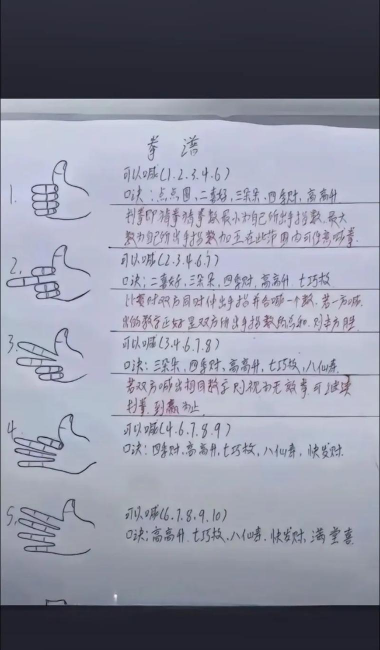 拳谱
1.
可以喊(1.2.3.4.6)
口决:点点圆,二喜好,三朵朵,四季财,高高升
划拳即猜拳猜拳数最小为自己所出手指数,最大
数为自己所出手指数加五在此范围内可任意喊拳.
2.
可以喊(2.3.4.6.7)
口决:二喜好,三朵朵,四季财,高高升 七巧枚
比赛时双方同时伸出手指并各喊一个数,若一方喊
出的数字正好是双方伸出手指数的总和,则该方胜
3.
可以喊(3.4.6.7.8)
口决:三朵朵,四季财,高高升,七巧枚,八仙寿.
若双方喊出相同数字则视为无效拳可继续
划拳.到赢为止
4.
可以喊(4.6.7.8.9)
口决:四季财,高高升,七巧枚,八仙寿,快发财.
5.
可以喊(6.7.8.9.10)
口决:高高升.七巧枚,八仙寿,快发财,满堂喜